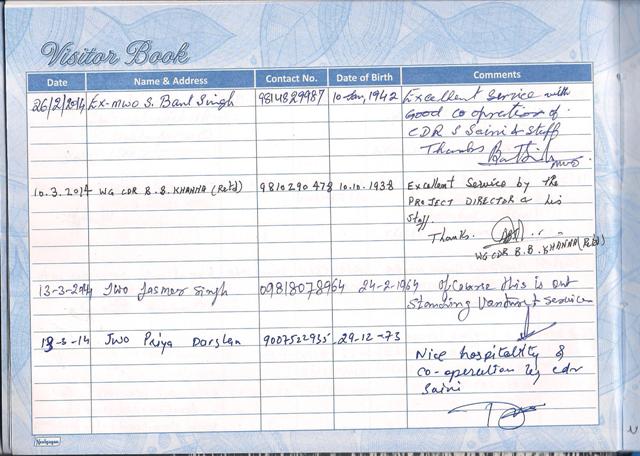 Visitor Book
Date Name & Address Contact No. Date of Birth Comments
26/2/2014 Ex-MWO S. Bant Singh 9814829987 10-Jan, 1942 Excellent Service with
Good co opration of
CDR S Saini & Staff
Thanks
MWO.
10.3.2014 WG CDR B.B. KHANNA (Retd) 9810290478 10.10.1938 Excellent Service by the
PROJECT DIRECTOR & his
Staff.
Thanks.
WG CDR B.B. KHANNA (Retd)
13-3-2014 JWO Jasmer Singh 09818078964 24-2-1964 Of Course this is out
Standing &  Service
13-3-14 JWO Priya Darshan 9007522935 29-12-73
Nice hospitality &
co-operation by cdr
Saini
Neelgagan